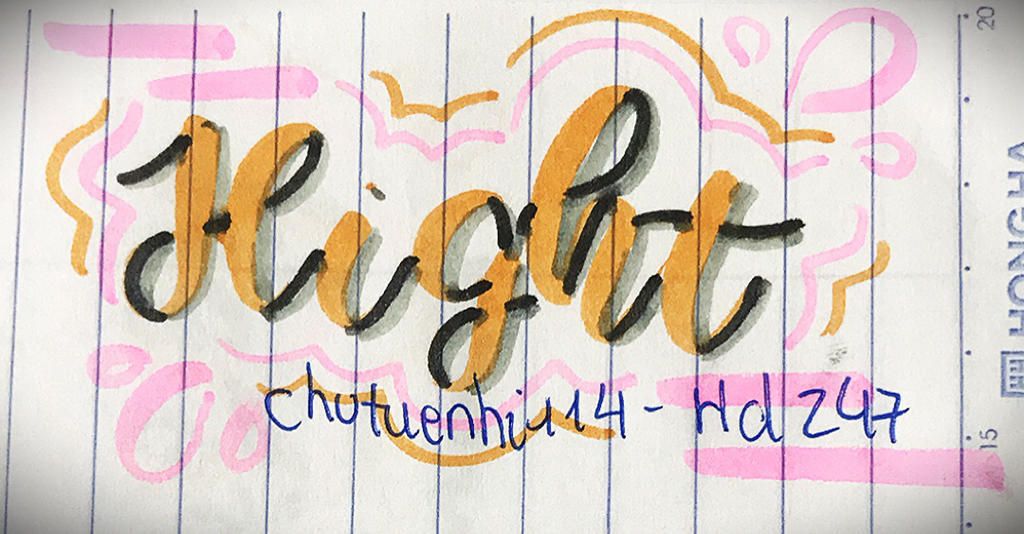 Hight
chutuenhiu14 - Hd 247
20
HONG HA
15